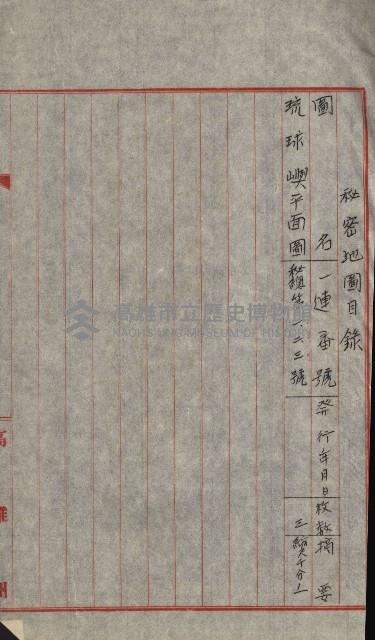 秘密地圖目錄
圖名 一連番號 発行年月日 枚数 摘要
琉球嶼平面圖 秘 號 三 縮尺 千分ノ一
高雄州
高雄市立歷史博物館
KAOHSIUNG MUSEUM OF HISTORY